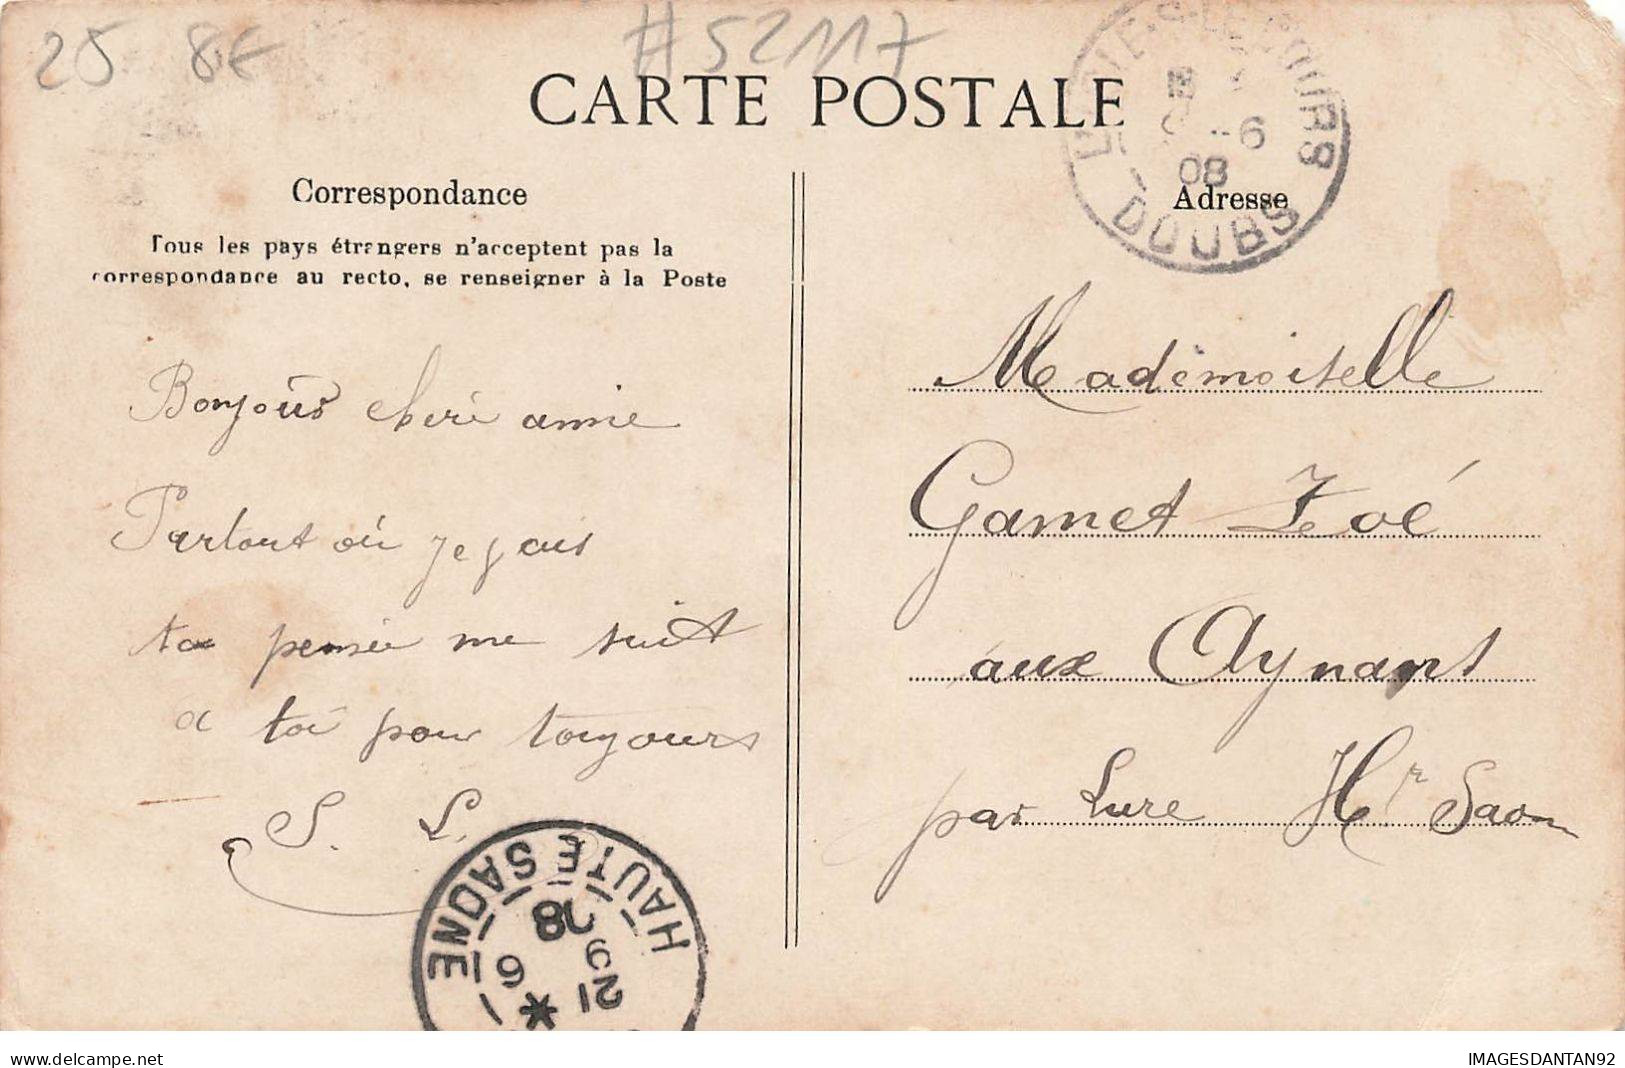 25 8€
#52117
CARTE POSTALE
Correspondance
Tous les pays étrangers n'acceptent pas la
correspondance au recto, se renseigner à la Poste
Bonjour cheré amie
Partout où je vais
ta pensée me suit
a toi pour toujours
S. L.
HAUTE SAONE
08
6
L'ISLE-S-LE-DOUBS
-6
08
DOUBS
Adresse
Mademoiselle
Gamet Zoé
aux Aynans
par Lure Hte Saone
delcampe.net
IMAGESDANTAN92